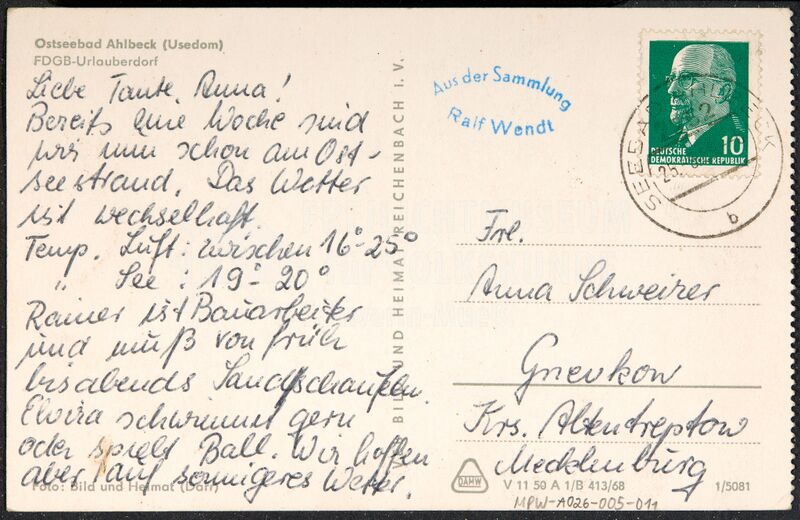 Ostseebad Ahlbeck (Usedom)
FDGB-Urlauberdorf
Liebe Tante Anna!
Bereits eine Woche sind
wir nun schon am Ost-
seestrand. Das Wetter
ist wechselhaft.
Temp. Luft: zwischen 16°-25°
" See : 19°-20°
Rainer ist Bauarbeiter
und muß von früh
bis abends Sandschaufeln.
Elvira schwimmt gern
oder spielt Ball. Wir hoffen
aber auf sonnigeres Wetter.
Foto: Bild und Heimat (Darr)
BILD UND HEIMAT REICHENBACH I. V.
Aus der Sammlung
Ralf Wendt
10
DEUTSCHE
DEMOKRATISCHE REPUBLIK
SEEBAD
b
Frl.
Anna Schweizer
Gnevkow
Krs. Altentreptow
Mecklenburg
DAMW
V 11 50 A 1/B 413/68
1/5081
MPW-A026-005-011